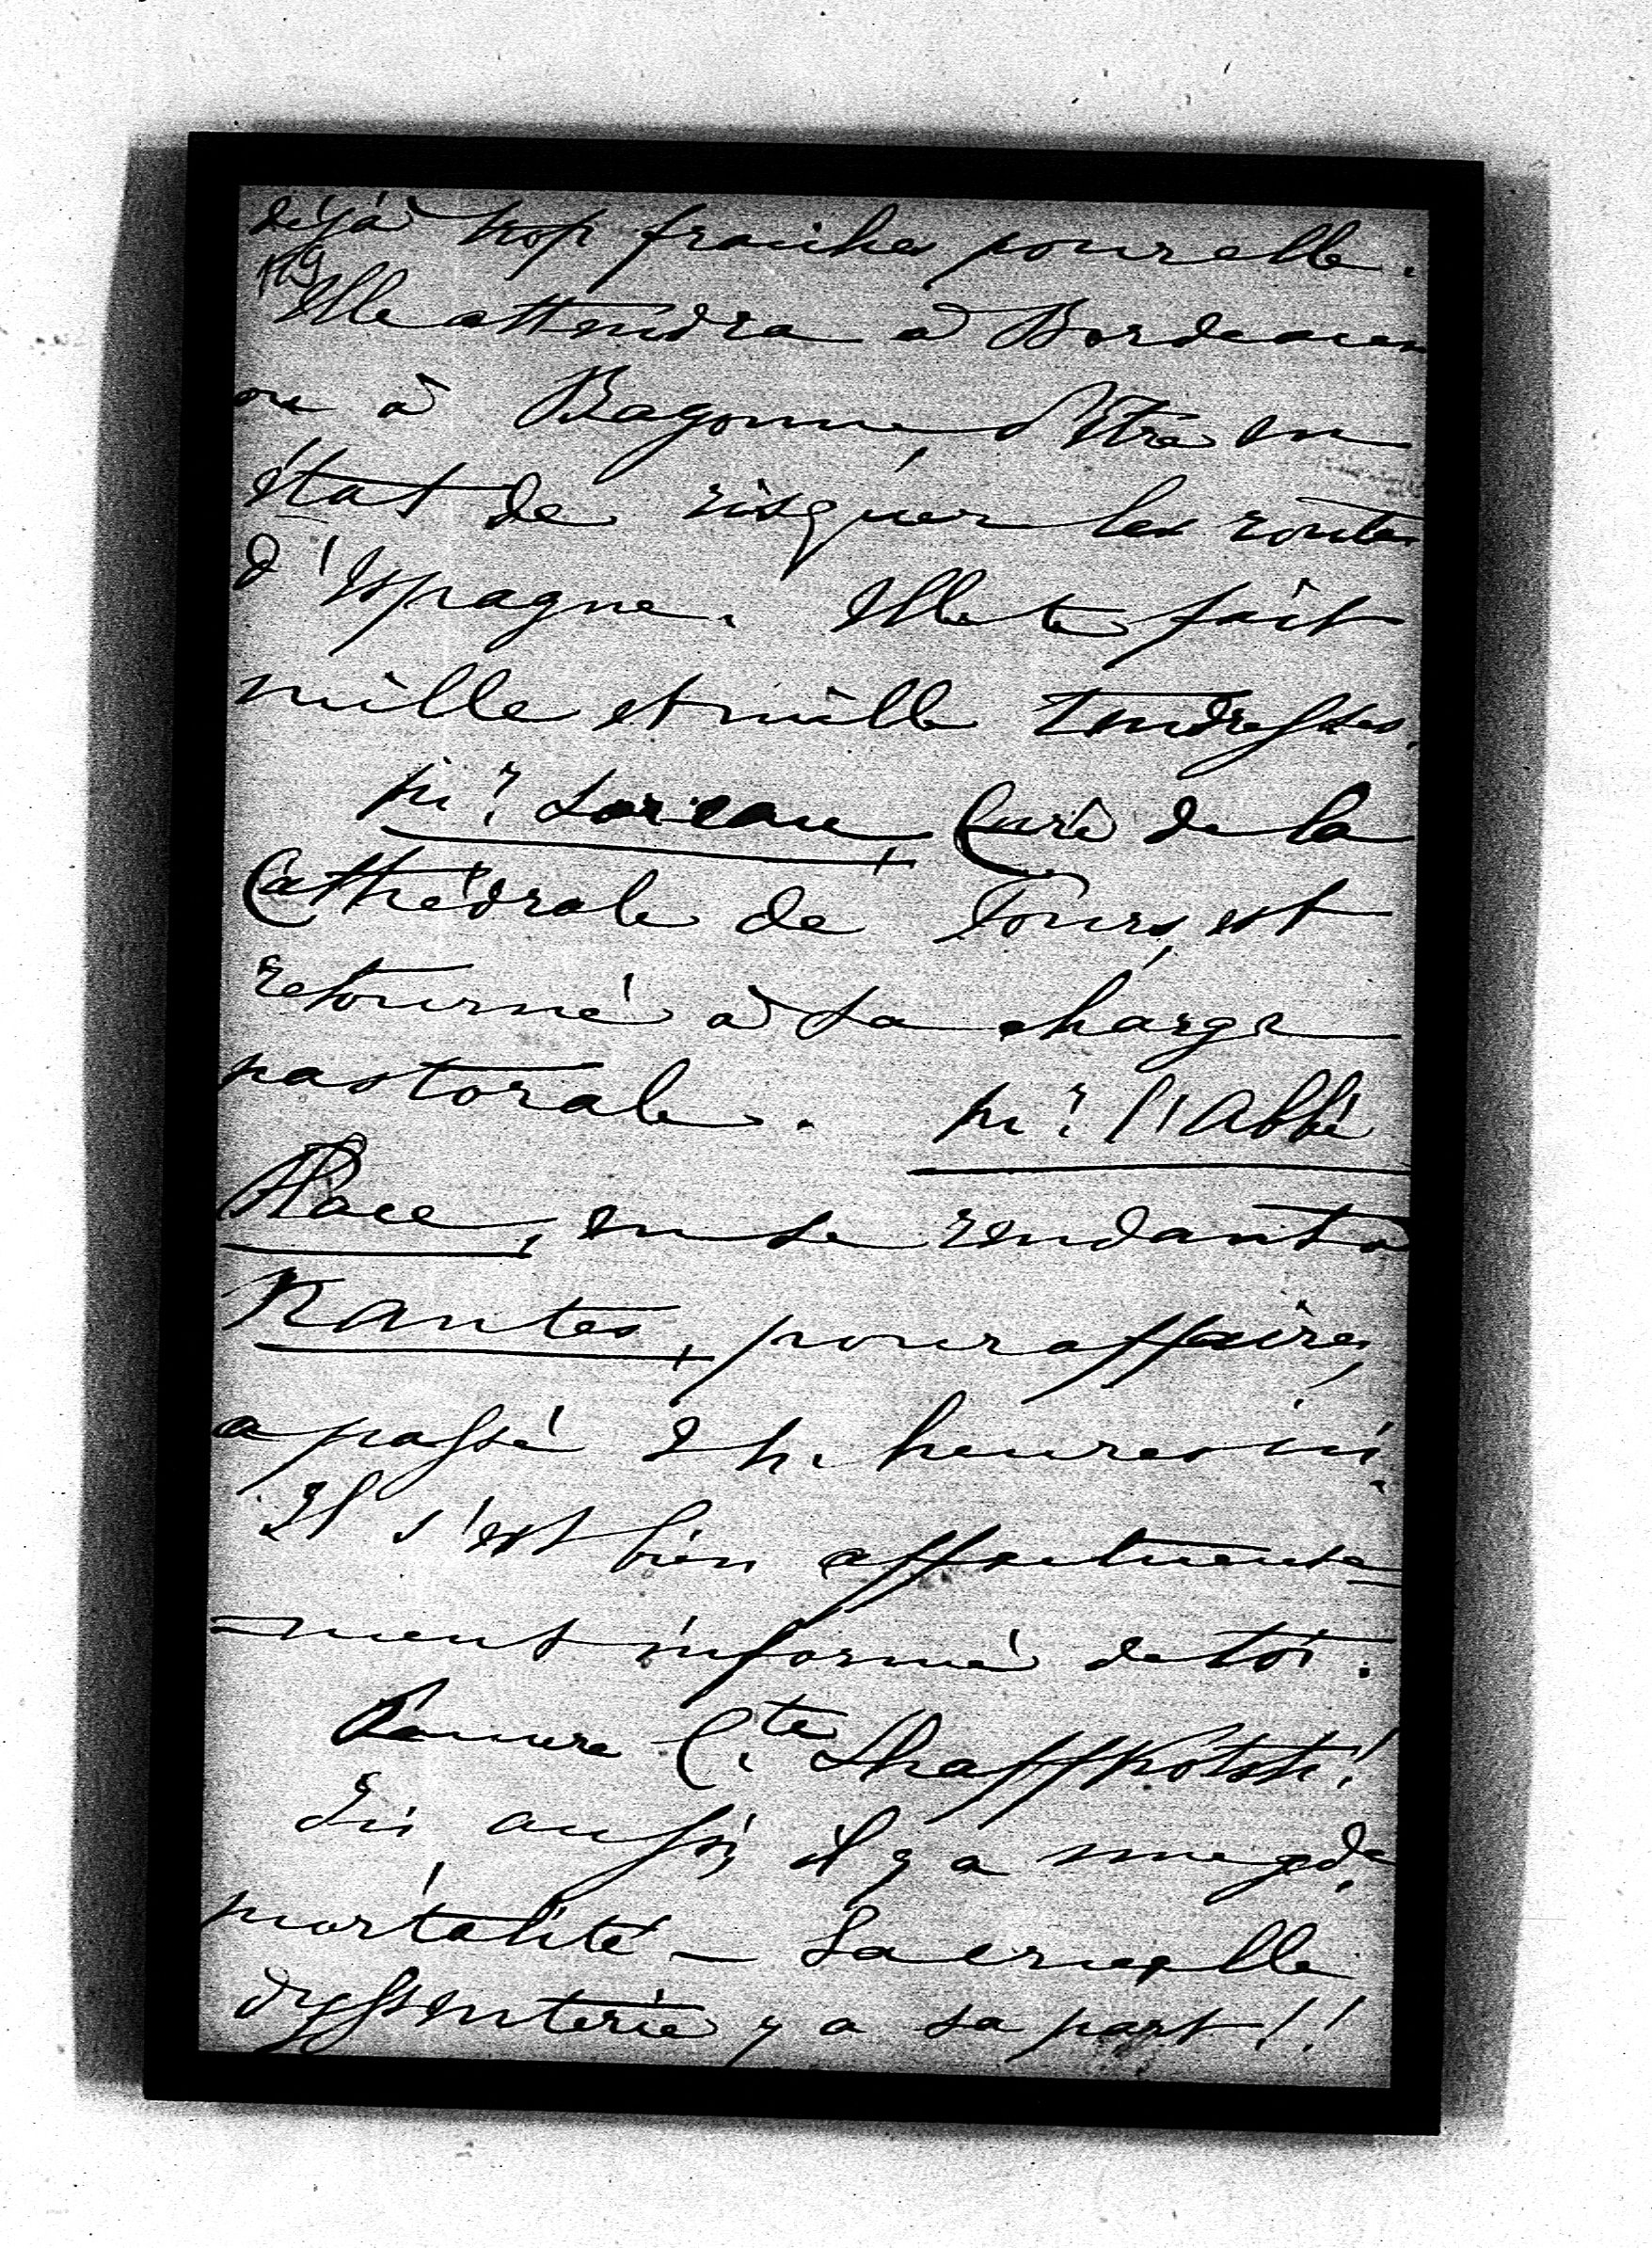 déjà trop fraîches pour elle.
Elle attendra à Bordeaux
ou à Bayonne, d'être en
état de risquer les routes
d'Espagne. Elle te fait
mille et mille tendresses.
Mr. Loreau, Curé de la
Cathédrale de Tours, est
retourné à sa charge
pastorale. Mr. l'Abbé
Place, en se rendant à
Nantes, pour affaires,
a passé 2 h. heures ici.
Il s'est bien affectueuse=
=ment informé de toi.
Pauvre C.te
Ici aussi, il y a une gde.
mortalité — La cruelle
dyssenterie y a sa part!!